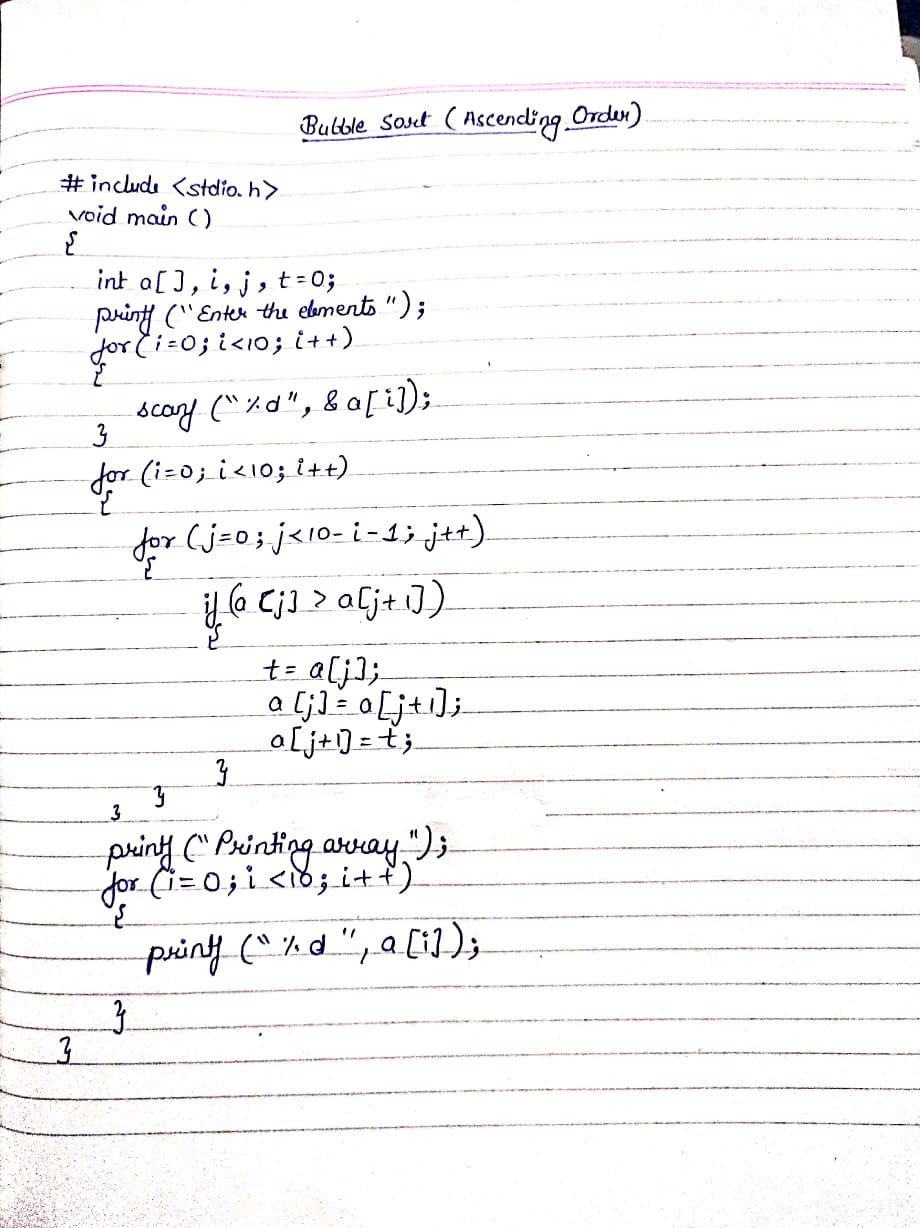 Bubble Sort (Ascending Order)
# include <stdio.h>
void main ()
{
int a[], i, j, t=0;
printf ("Enter the elements");
for(i=0; i<10; i++)
{
scanf ("%d", &a[i]);
}
for (i=0; i<10; i++)
{
for (j=0; j<10-i-1; j++)
{
if (a[j] > a[j+1])
{
t= a[j];
a[j]= a[j+1];
a[j+1]=t;
}
}
}
printf ("Printing array");
for (i=0; i<10; i++)
{
printf ("%d", a[i]);
}
}